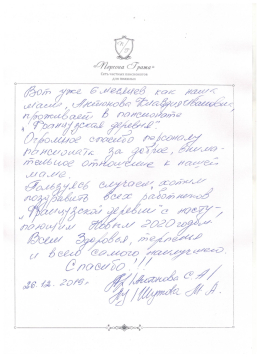 «Персона Грата»
Сеть частных пансионатов
для пожилых
Вот уже 6 месяцев как наша
мама, Антонова Клавдия
проживает в пансионате
"Французская деревня".
Огромное спасибо персоналу
пансионата за доброе, внима-
тельное отношение к нашей
маме.
Пользуясь случаем, хотим
поздравить всех работников
"Французской деревни" с насту-
пающим Новым 2020 годом.
Всем здоровья, терпения
и всего самого наилучшего.
Спасибо!!!
/Антонова С. А/
28.12.2019г. /Шутова М. А.